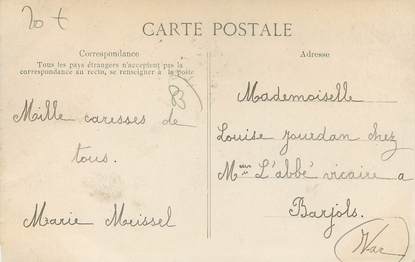 20 t
CARTE POSTALE
Correspondance
Tous les pays étrangers n'acceptent pas la
correspondance au recto, se renseigner à la poste
83
Mille caresses de
tous.
Marie Meissel
Adresse
Mademoiselle
Louise Jourdan chez
Mʳ L'abbé vicaire a
Barjols.
Var